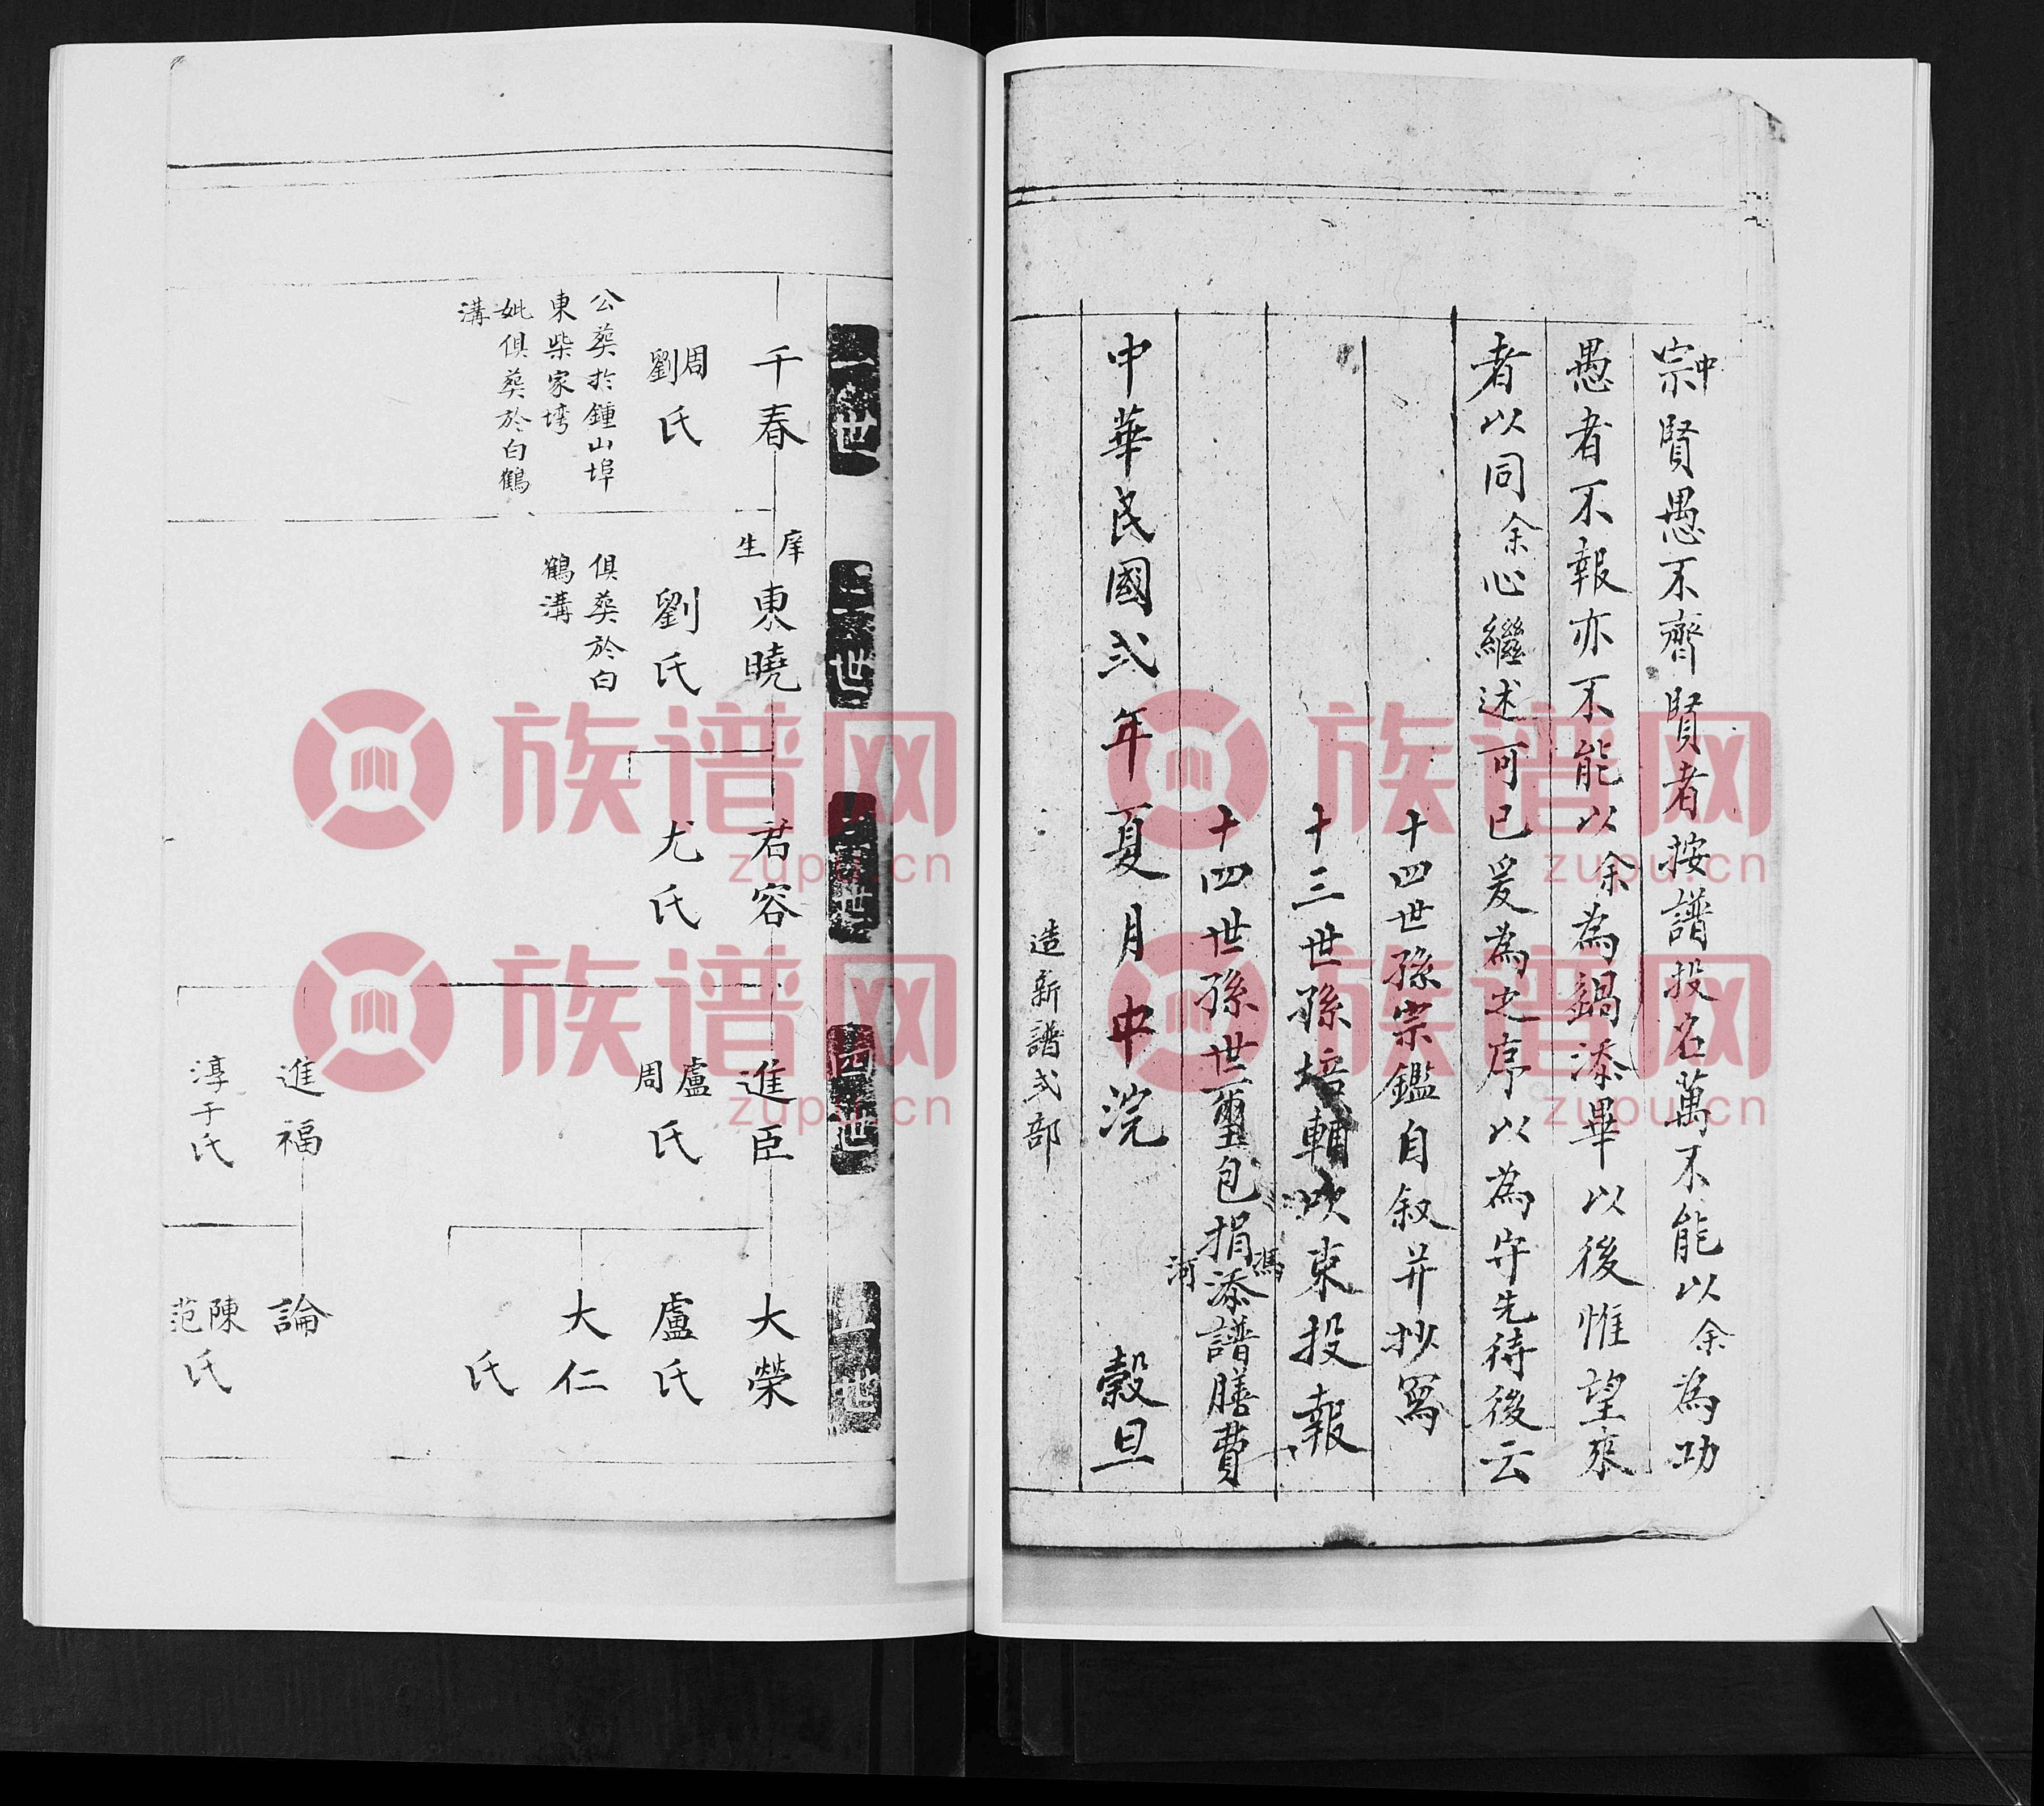 宗中賢愚不齊賢者按譜投名萬不能以余為功
愚者不報亦不能以余為錫添畢以後惟望來
者以同余心繼述可已爰為之序以為守先待後云
十四世孫宗鑑自叙并抄寫
十三世孫培輔吹束投報
十四世孫世璽包捐添譜膳費
馮
河
中華民國弍年夏月中浣 穀旦
造新譜弍部
一世
千春
周劉氏
公葬於鍾山埠
東柴家塆
妣俱葬於白鶴
溝
二世
庠生
東曉
劉氏
俱葬於白
鶴溝
三世
君容
尤氏
四世
進臣
盧周氏
進福
淳于氏
五世
大榮
盧氏
大仁
氏
論
陳范氏
族谱网
zupu.cn
族谱网
zupu.cn
族谱网
zupu.cn
族谱网
zupu.cn